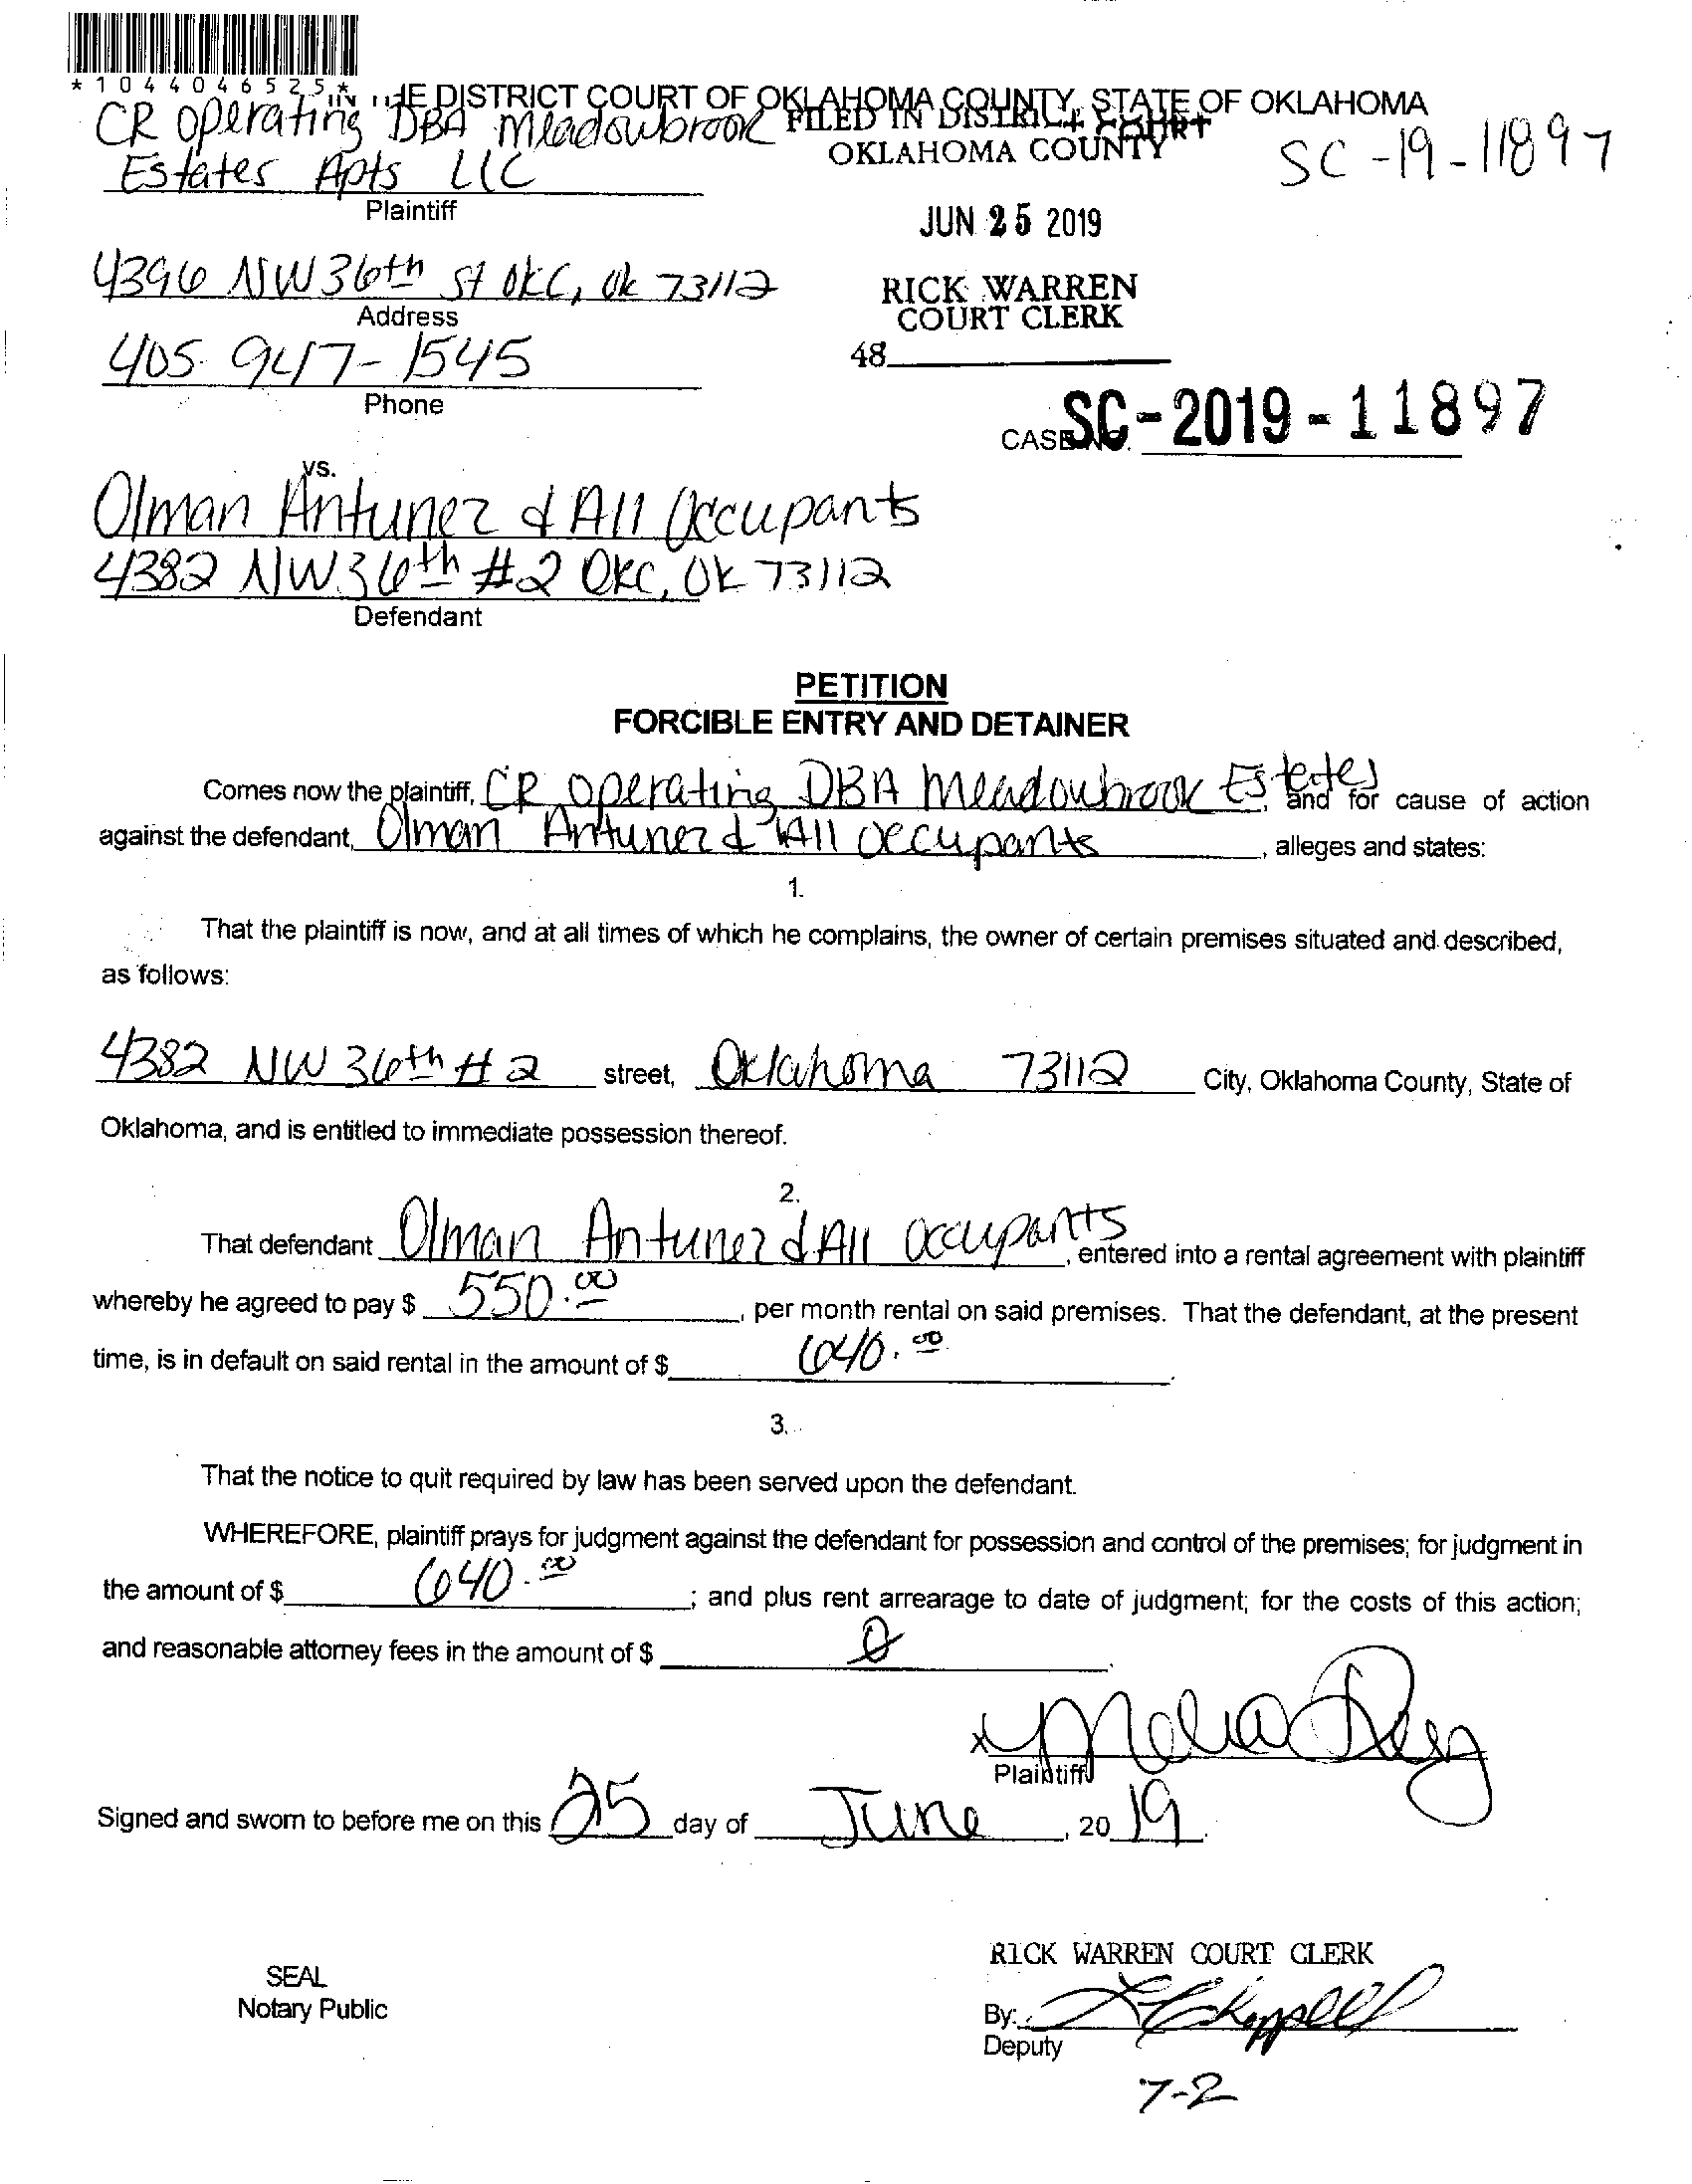 *1044046525*
IN THE DISTRICT COURT OF OKLAHOMA COUNTY, STATE OF OKLAHOMA
CR operating DBA Meadowbrook
Estates Apts LLC
Plaintiff
FILED IN DISTRICT COURT
OKLAHOMA COUNTY
SC-19-11897
JUN 25 2019
4396 NW 36th St OKC, Ok 73112
Address
RICK WARREN
COURT CLERK
405 947-1545
Phone
48
CASE NO. SC-2019-11897
vs.
Olman Antunez & All Occupants
4382 NW 36th #2 OKC, OK 73112
Defendant
PETITION
FORCIBLE ENTRY AND DETAINER
Comes now the plaintiff, CR operating DBA Meadowbrook Estates, and for cause of action
against the defendant, Olman Antunez & All occupants, alleges and states:
1.
That the plaintiff is now, and at all times of which he complains, the owner of certain premises situated and described,
as follows:
4382 NW 36th #2 street, Oklahoma 73112 City, Oklahoma County, State of
Oklahoma, and is entitled to immediate possession thereof.
2.
That defendant Olman Antunez & All occupants, entered into a rental agreement with plaintiff
whereby he agreed to pay $ 550.00, per month rental on said premises. That the defendant, at the present
time, is in default on said rental in the amount of $ 640.00.
3.
That the notice to quit required by law has been served upon the defendant.
WHEREFORE, plaintiff prays for judgment against the defendant for possession and control of the premises; for judgment in
the amount of $ 640.00; and plus rent arrearage to date of judgment; for the costs of this action;
and reasonable attorney fees in the amount of $ 0.
x
Plaintiff
Signed and sworn to before me on this 25 day of June, 2019.
RICK WARREN COURT CLERK
SEAL
Notary Public
By:
Deputy
7-2